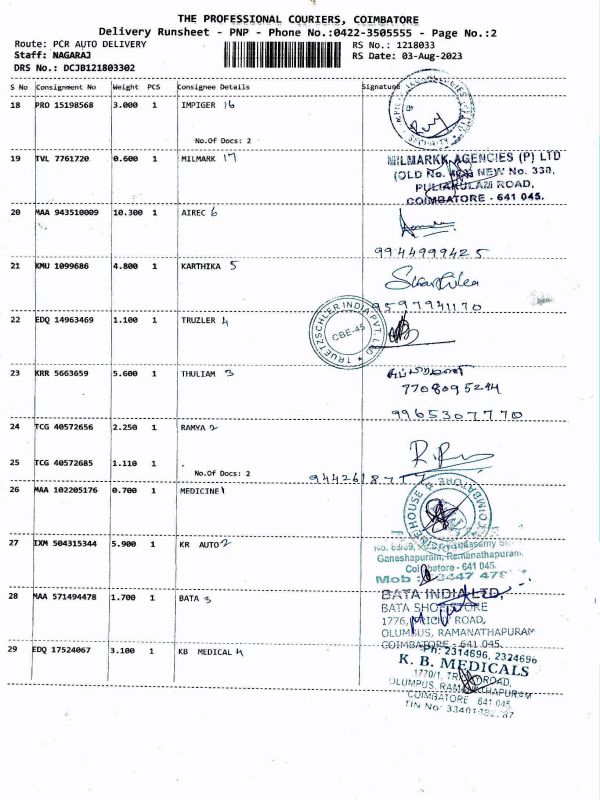 THE PROFESSIONAL COURIERS, COIMBATORE
Delivery Runsheet - PNP - Phone No.:0422-3505555 - Page No.:2
Route: PCR AUTO DELIVERY RS No.: 1218033
Staff: NAGARAJ RS Date: 03-Aug-2023
DRS No.: DCJB121803302
S No Consignment No Weight PCS Consignee Details Signature
18 PRO 15198568 3.000 1 IMPIGER 16
SECURITY
No.Of Docs: 2
19 TVL 7761720 0.600 1 MILMARK 17
MILMARKK AGENCIES (P) LTD
(OLD No. NEW No. 330,
PULIAKULAM ROAD,
COIMBATORE - 641 045.
20 MAA 943510009 10.300 1 AIREC 6
9944999425
21 KMU 1099686 4.800 1 KARTHIKA 5
9597941170
22 EDQ 14963469 1.100 1 TRUZLER 4
TRUETZSCHLER INDIA PVT. LTD
CBE-45
23 KRR 5663659 5.600 1 THULIAM 3
7708095244
9965307770
24 TCG 40572656 2.250 1 RAMYA 2
25 TCG 40572685 1.110 1
No.Of Docs: 2
26 MAA 102205176 0.700 1 MEDICINE 1
27 IXM 504315344 5.900 1 KR AUTO 2
Ganeshapuram, Ramanathapuram,
Coimbatore - 641 045.
Mob :
28 MAA 571494478 1.700 1 BATA 3
BATA INDIA LTD,
BATA SHOE STORE
1776, TRICHY ROAD,
OLUMBUS, RAMANATHAPURAM
COIMBATORE - 641 045.
Ph: 2314696, 2324696
29 EDQ 17524067 3.100 1 KB MEDICAL 4
K. B. MEDICALS
1770/1, ROAD,
OLUMPUS, RAMANATHAPURAM
COIMBATORE 641 045
TIN No: